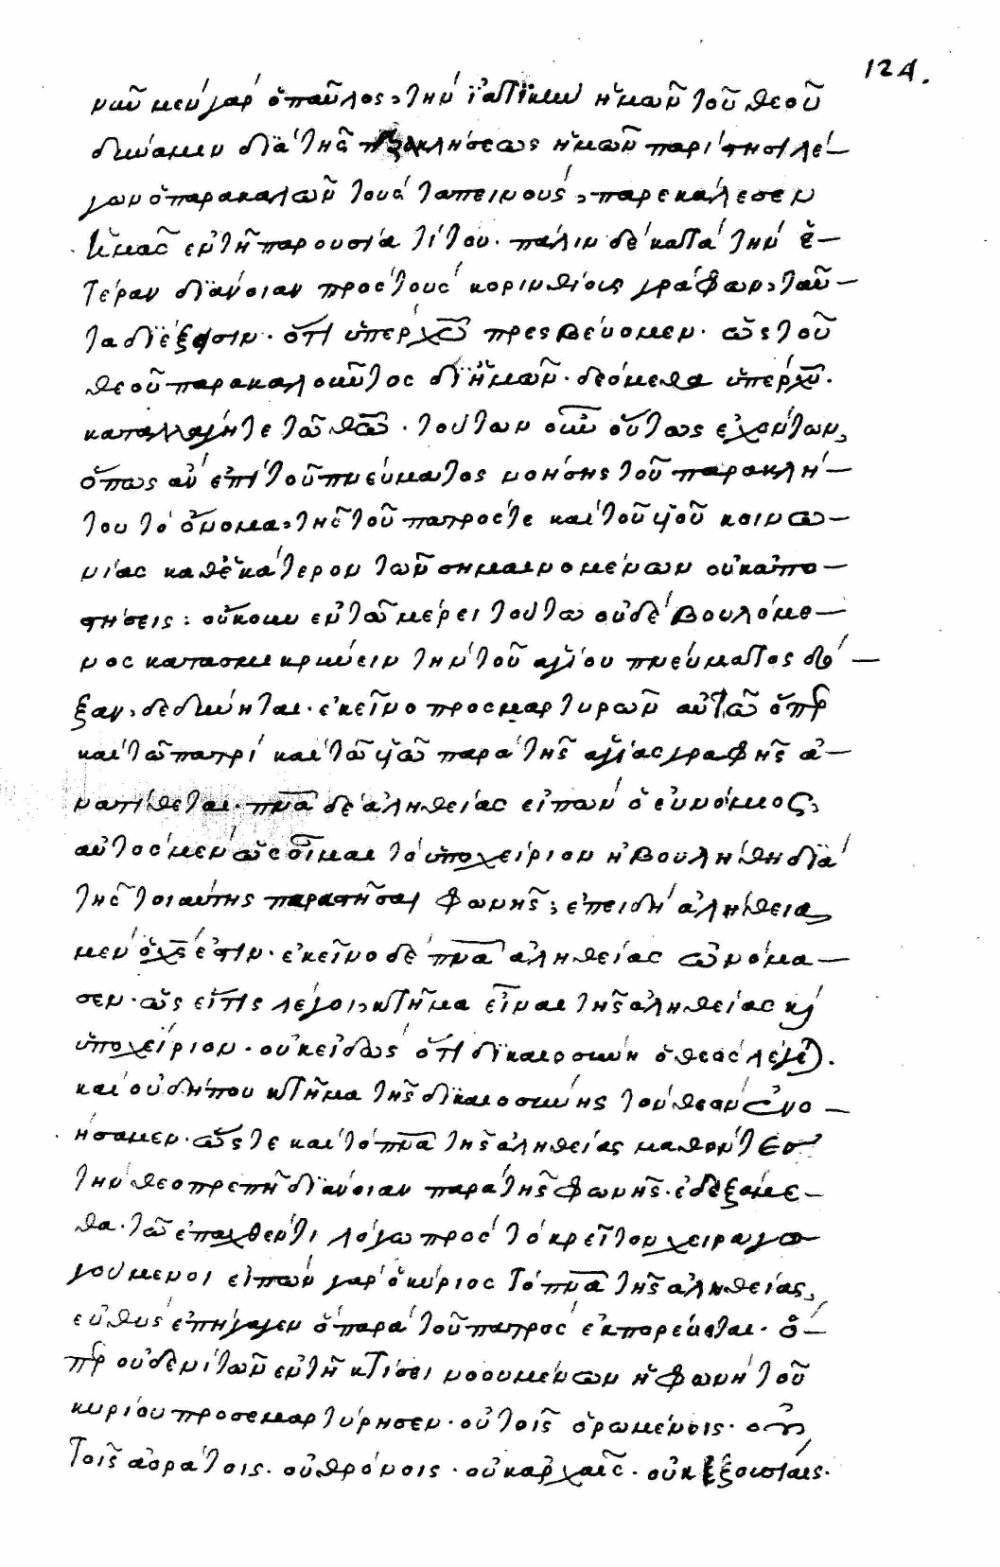 124.
νῦν μεν γὰρ ὁ παῦλος, τὴν ἰατικὴν ἡμῶν τοῦ θεοῦ
δύναμιν διὰ τῆς παρακλήσεως ἡμῶν παρίστησι λέ—
γων ὁ παρακαλῶν τοὺς ταπεινοὺς, παρεκάλεσεν
ἡμᾶς ἐν τῇ παρουσία τίτου. πάλιν δὲ κατὰ τὴν ἑ—
τέραν διάνοιαν πρὸς τοὺς κορινθίοις γράφων, ταῦ—
τα διέξεισιν. ὅτι ὑπὲρ χῦ πρεσβεύομεν. ὡς τοῦ
θεοῦ παρακαλοῦντος δι' ἡμῶν. δεόμεθα ὑπὲρ χῦ.
καταλλάγητε τῶ θῶ. τούτων οὖν οὕτως ἐχόντων,
ὅπως ἀν ἐπὶ τοῦ πνεύματος νοήσης τοῦ παρακλή—
του τὸ ὄνομα, τῆς τοῦ πατρός τε καὶ τοῦ υἱοῦ κοινω—
νίας καθ' ἑκάτερον τῶν σημαινομένων οὐκ ἀπο—
στήσεις: οὔκουν ἐν τῶ μέρει τούτω οὐδὲ βουλόμε—
νος κατασμικρύνειν τὴν τοῦ ἁγίου πνεύματος δό—
ξαν, δεδύνηται. ἐκεῖνο προσμαρτυρῶν αὐτῶ ὅπερ
καὶ τῶ πατρὶ καὶ τῶ υἱῶ παρὰ τῆς ἁγίας γραφῆς ἀ—
νατίθεται. πνᾶ δὲ ἀληθείας εἰπὼν ὁ εὐνόμιος,
αὐτὸς μὲν ὡς οἶμαι τὸ ὑποχείριον ἠβουλήθη διὰ
τῆς τοιαύτης παραστῆσαι φωνῆς, ἐπειδὴ ἀλήθεια
μὲν ὁ χς ἐστιν. ἐκεῖνο δὲ πνᾶ ἀληθείας ὠνόμα—
σεν. ὡς εἴτις λέγοι, κτῆμα εἶναι τῆς ἀληθείας καὶ
ὑποχείριον. οὐκ εἰδὼς ὅτι δικαιοσύνη ὁ θεὸς λέγεται.
καὶ οὐ δήπου κτῆμα τῆς δικαιοσύνης τὸν θεὸν ἐνο—
ήσαμεν. ὥς τε καὶ τὸ πνᾶ τῆς ἀληθείας μαθόντες
τὴν θεοπρεπῆ διάνοιαν παρὰ τῆς φωνῆς. ἐδεξάμε—
θα. τῶ ἐπαχθέντι λόγω πρὸς τὸ κρεῖττον χειραγω—
γούμενοι εἰπὼν γὰρ ὁ κύριος τὸ πνᾶ τῆς ἀληθείας,
εὐθὺς ἐπήγαγεν ὃ παρὰ τοῦ πατρὸς ἐκπορεύεται. ὅ—
περ οὐδενὶ τῶν ἐν τῇ κτίσει νοουμένων ἡ φωνὴ τοῦ
κυρίου προσεμαρτύρησεν. οὐ τοῖς ὁρωμένοις. οὐ
τοῖς ἀοράτοις. οὐ θρόνοις. οὐκ ἀρχαῖς. οὐκ ἐξουσίαις.